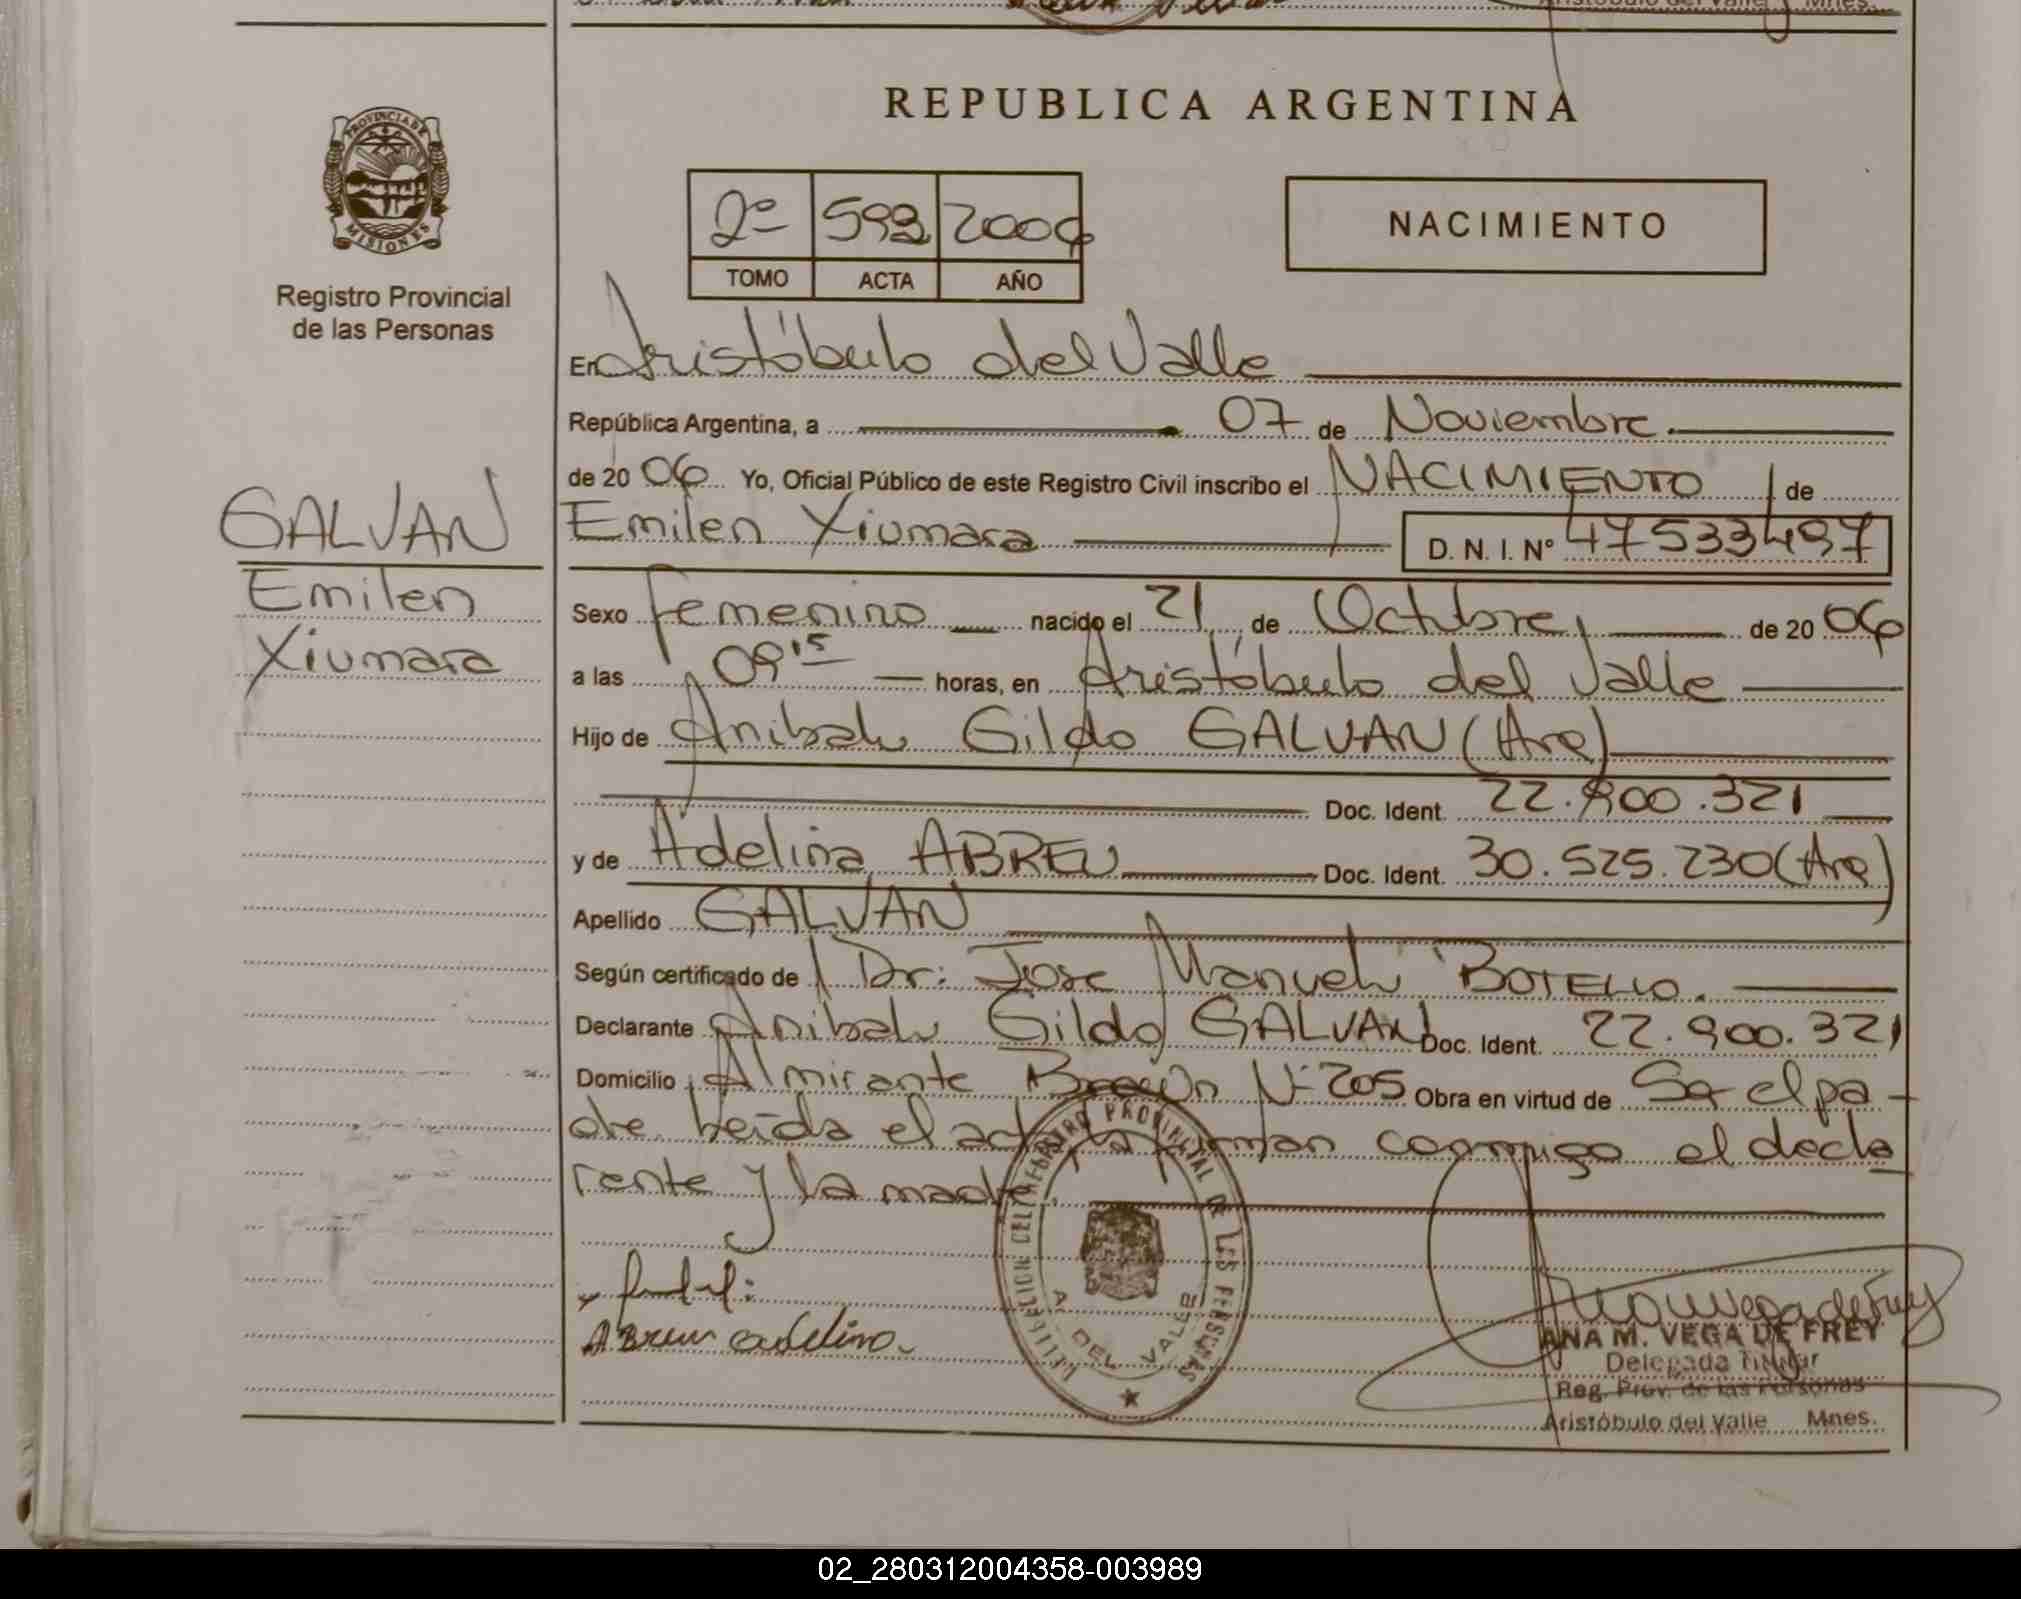 REPUBLICA ARGENTINA
PROVINCIA DE
MISIONES
Registro Provincial
de las Personas
2º 593 2006
TOMO ACTA AÑO
NACIMIENTO
En Aristóbulo del Valle
República Argentina, a 07 de Noviembre
de 20 06 Yo, Oficial Público de este Registro Civil inscribo el NACIMIENTO de
GALVAN
Emilen
Xiumara
Emilen Xiumara D. N. I. Nº 47533497
Sexo femenino nacido el 21 de Octubre de 20 06
a las 09 15 horas, en Aristóbulo del Valle
Hijo de Anibal Gildo GALVAN (Arg)
Doc. Ident. 22.900.321
y de Adelina ABREU Doc. Ident. 30.525.230 (Arg)
Apellido GALVAN
Según certificado de Dr: Jose Manuel BOTELLO.
Declarante Anibal Gildo GALVAN Doc. Ident. 22.900.321
Domicilio Almirante Brown Nº 205 Obra en virtud de Ser el pa-
dre. Leída el acta la firman conmigo el decla
rante y la madre.
Abreu adelina.
REGISTRO PROVINCIAL DE LAS PERSONAS
A. DEL VALLE
ANA M. VEGA DE FREY
Delegada Titular
Reg. Prov. de las Personas
Aristóbulo del Valle Mnes.
02_280312004358-003989